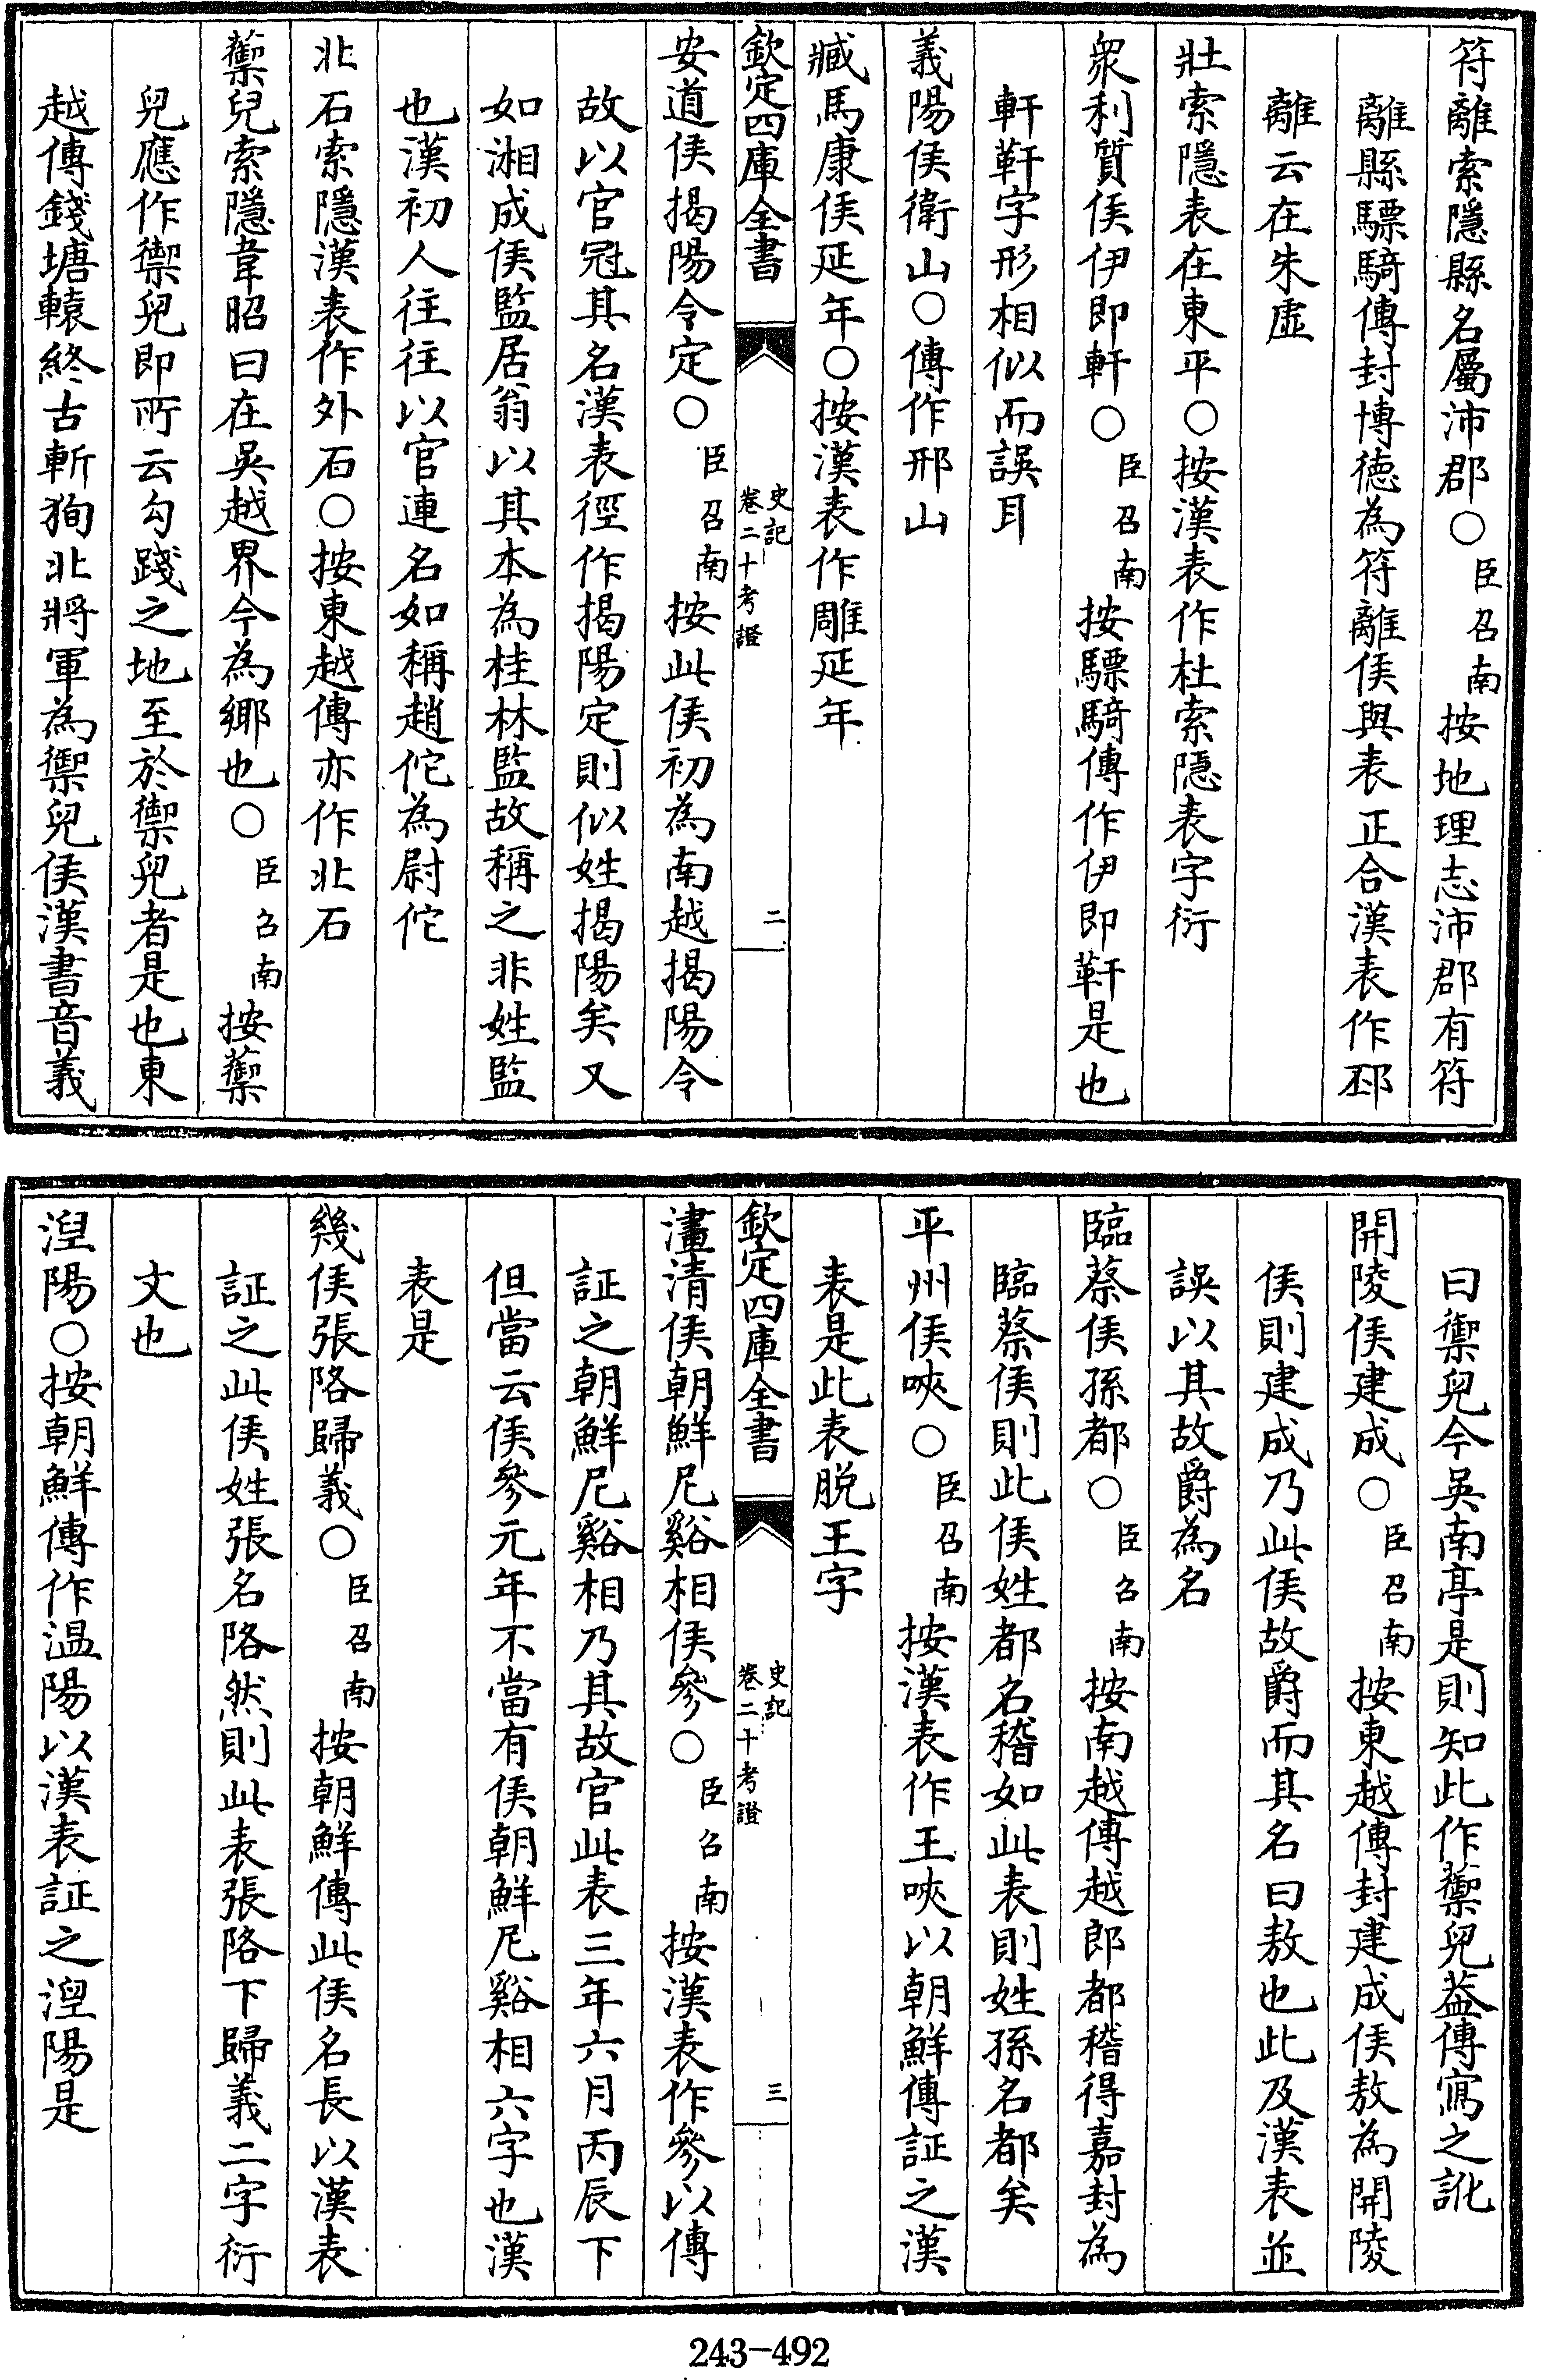 符離索隱縣名屬沛郡○臣召南按地理志沛郡有符
離縣驃騎傳封博德為符離侯與表正合漢表作邳
離云在朱虛
壯索隱表在東平○按漢表作杜索隱表字衍
衆利質侯伊即軒○臣召南按驃騎傳作伊即靬是也
軒靬字形相似而誤耳
義陽侯衛山○傳作邢山
臧馬康侯延年○按漢表作雕延年
欽定四庫全書
史記
卷二十考證
二
安道侯揭陽令定○臣召南按此侯初為南越揭陽令
故以官冠其名漢表徑作揭陽定則似姓揭陽矣又
如湘成侯監居翁以其本為桂林監故稱之非姓監
也漢初人往往以官連名如稱趙佗為尉佗
北石索隱漢表作外石○按東越傳亦作北石
蘌兒索隱韋昭曰在吳越界今為鄉也○臣召南按蘌
兒應作禦兒即所云勾踐之地至於禦兒者是也東
越傳錢塘轅終古斬狥北將軍為禦兒侯漢書音義
曰禦兒今吳南亭是則知此作蘌兒葢傳寫之訛
開陵侯建成○臣召南按東越傳封建成侯敖為開陵
侯則建成乃此侯故爵而其名曰敖也此及漢表並
誤以其故爵為名
臨蔡侯孫都○臣召南按南越傳越郎都稽得嘉封為
臨蔡侯則此侯姓都名稽如此表則姓孫名都矣
平州侯唊○臣召南按漢表作王唊以朝鮮傳証之漢
表是此表脱王字
欽定四庫全書
史記
卷二十考證
三
澅清侯朝鮮尼谿相侯參○臣召南按漢表作參以傳
証之朝鮮尼谿相乃其故官此表三年六月丙辰下
但當云侯參元年不當有侯朝鮮尼谿相六字也漢
表是
幾侯張陷歸義○臣召南按朝鮮傳此侯名長以漢表
証之此侯姓張名陷然則此表張陷下歸義二字衍
文也
湼陽○按朝鮮傳作溫陽以漢表証之湼陽是
243-492